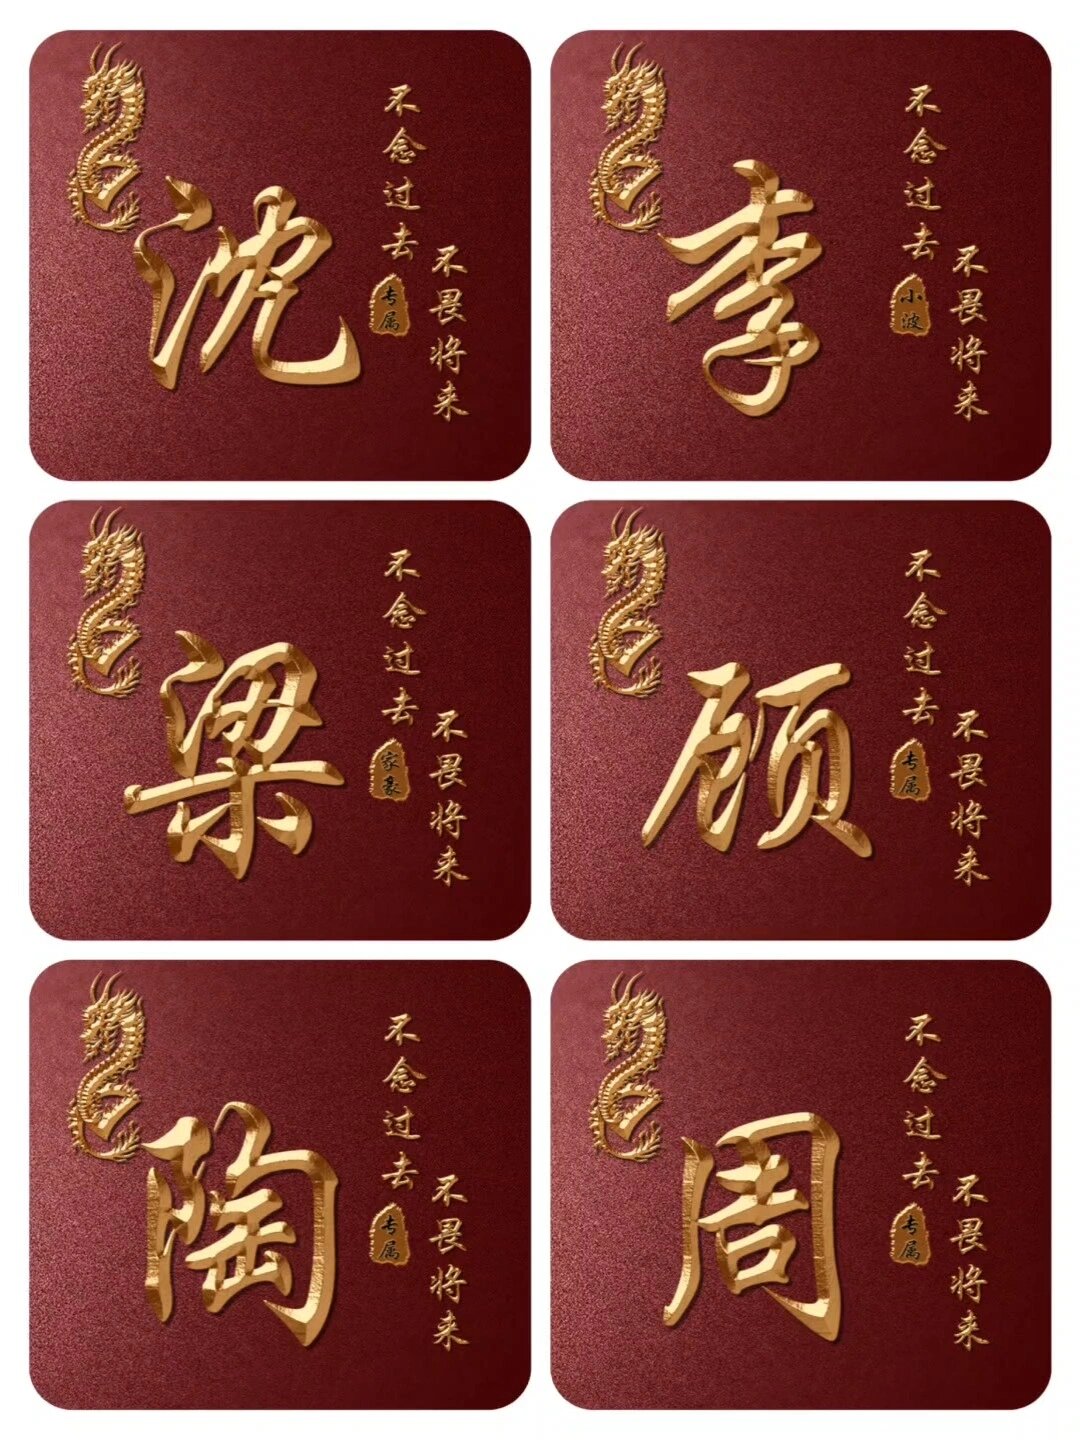 沈
不念过去
不畏将来
专属
李
不念过去
不畏将来
小波
梁
不念过去
不畏将来
家豪
顾
不念过去
不畏将来
专属
陶
不念过去
不畏将来
专属
周
不念过去
不畏将来
专属